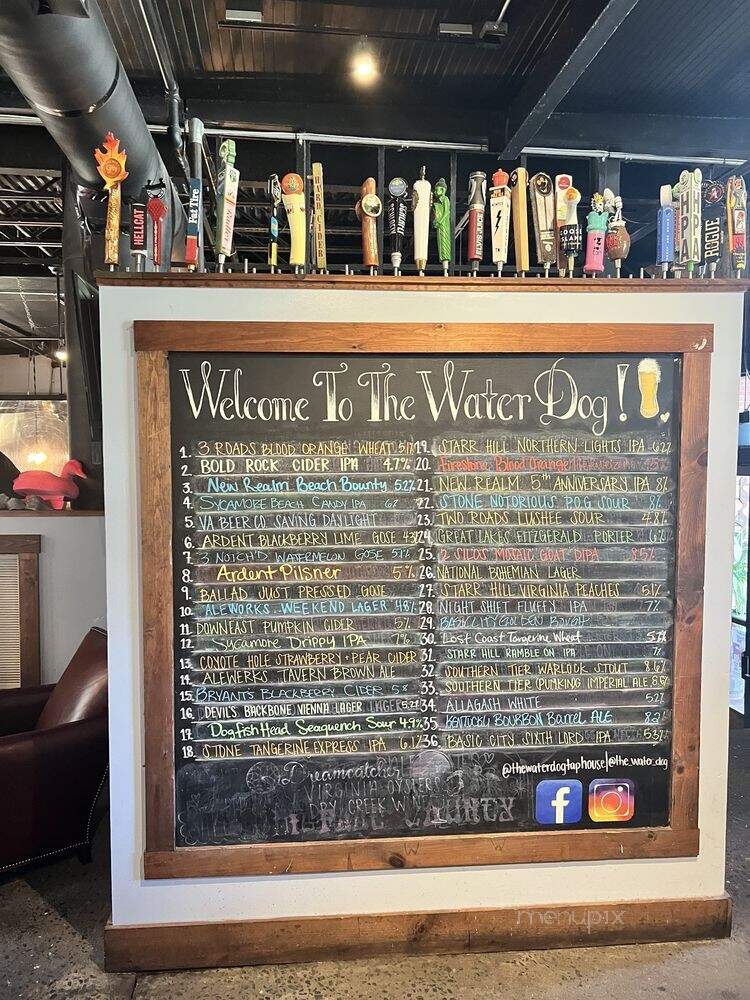 HELLCAT
Fat Tire
HPA
HPA
ROGUE
Welcome To The Water Dog!
1. 3 ROADS BLOOD ORANGE WHEAT
2. BOLD ROCK CIDER IPA 4.7%
3. New Realm Beach Bounty 5.2%
4. SYCAMORE BEACH CANDY IPA
5. VA BEER CO. SAVING DAYLIGHT
6. ARDENT BLACKBERRY LIME GOSE
7. 3 NOTCH'D WATERMELON GOSE
8. Ardent Pilsner 5%
9. BALLAD JUST PRESSED GOSE
10. ALEWORKS WEEKEND LAGER
11. DOWNEAST PUMPKIN CIDER 5%
12. Sycamore Drippy IPA 7%
13. COYOTE HOLE STRAWBERRY + PEAR CIDER
14. ALEWERKS TAVERN BROWN ALE
15. BRYANT'S BLACKBERRY CIDER
16. DEVIL'S BACKBONE VIENNA LAGER
17. Dogfish Head Seaquench Sour 4.9%
18. STONE TANGERINE EXPRESS IPA
19. STARR HILL NORTHERN LIGHTS IPA
20. Firestone Blood Orange
21. NEW REALM 5th ANNIVERSARY IPA 8%
22. STONE NOTORIOUS P.O.G SOUR
23. TWO ROADS LUSHEE SOUR 4.8%
24. GREAT LAKES FITZGERALD PORTER 6%
25. 2 SILOS MOSAIC GOAT DIPA 8.5%
26. NATIONAL BOHEMIAN LAGER
27. STARR HILL VIRGINIA PEACHES
28. NIGHT SHIFT FLUFFY IPA 7%
29. BASIC CITY
30. Lost Coast Tangerine Wheat
31. STARR HILL RAMBLE ON IPA 7%
32. SOUTHERN TIER WARLOCK STOUT 8.6%
33. SOUTHERN TIER PUMKING IMPERIAL ALE
34. ALLAGASH WHITE 5.2%
35. KENTUCKY BOURBON Barrel ALE 8.2%
36. BASIC CITY SIXTH LORD IPA
Dreamcatcher
VIRGINIA OYSTERS
@thewaterdogtaphouse | @the_water_dog
f
menupix